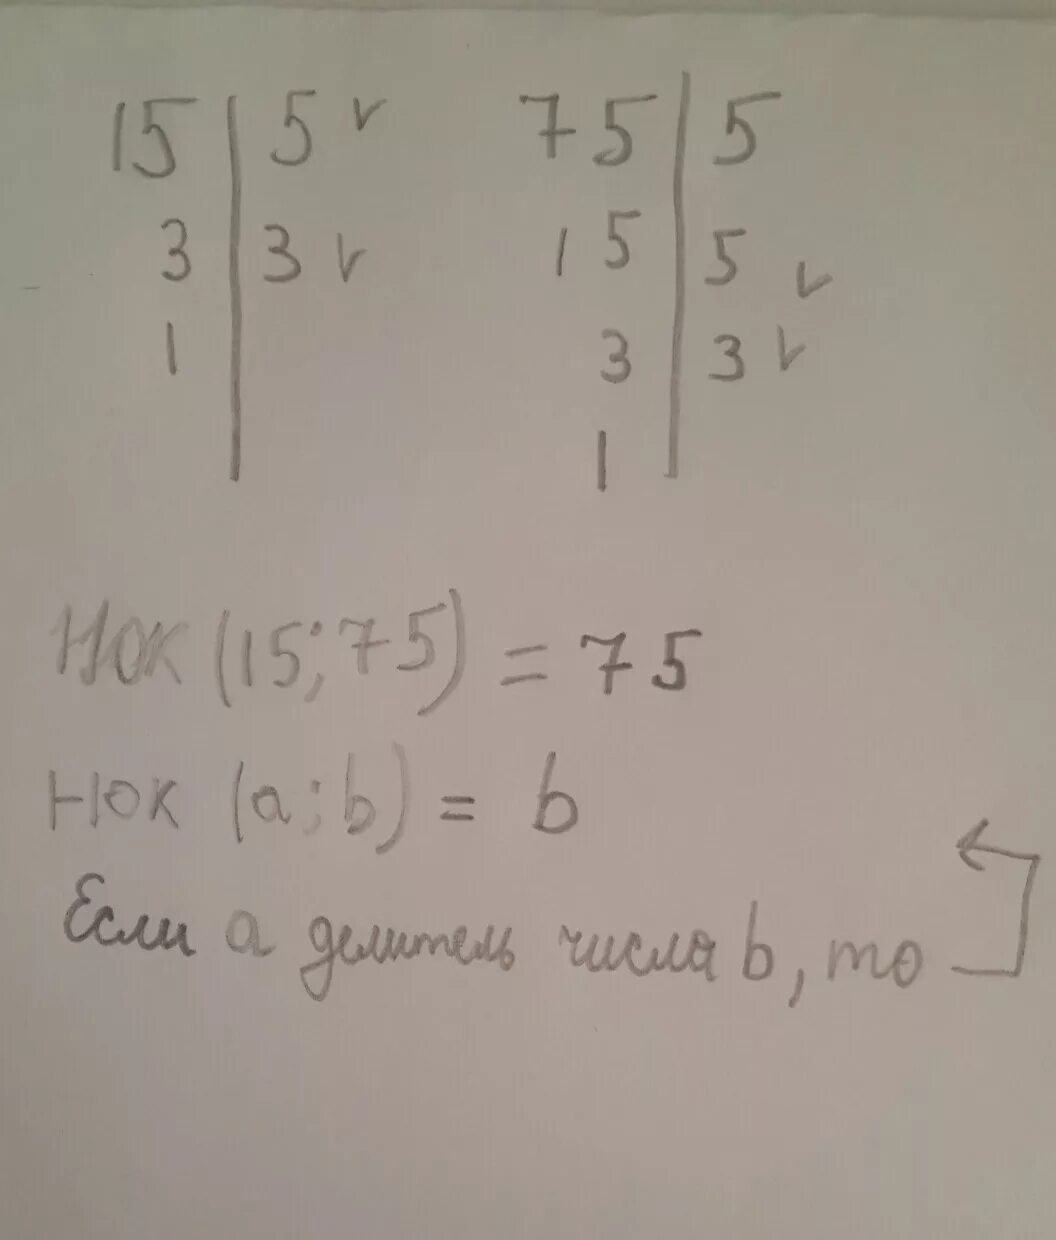 15 | 5 v 75 | 5
3 | 3 v 15 | 5 v
1 | 3 | 3 v
1 |
НОК (15; 75) = 75
НОК (a; b) = b
Если a делитель числа b, то